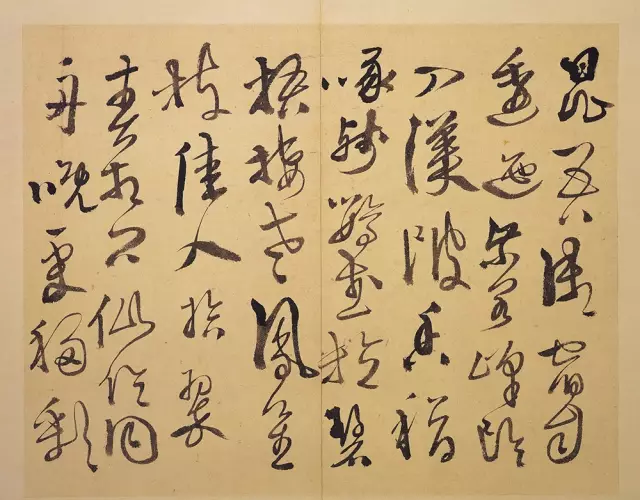 昆吾御宿自
逶迤紫閣峰陰
入渼陂香稻
啄殘鸚鵡粒碧
梧棲老鳳凰
枝佳人拾翠
春相問仙侶同
舟晚更移彩